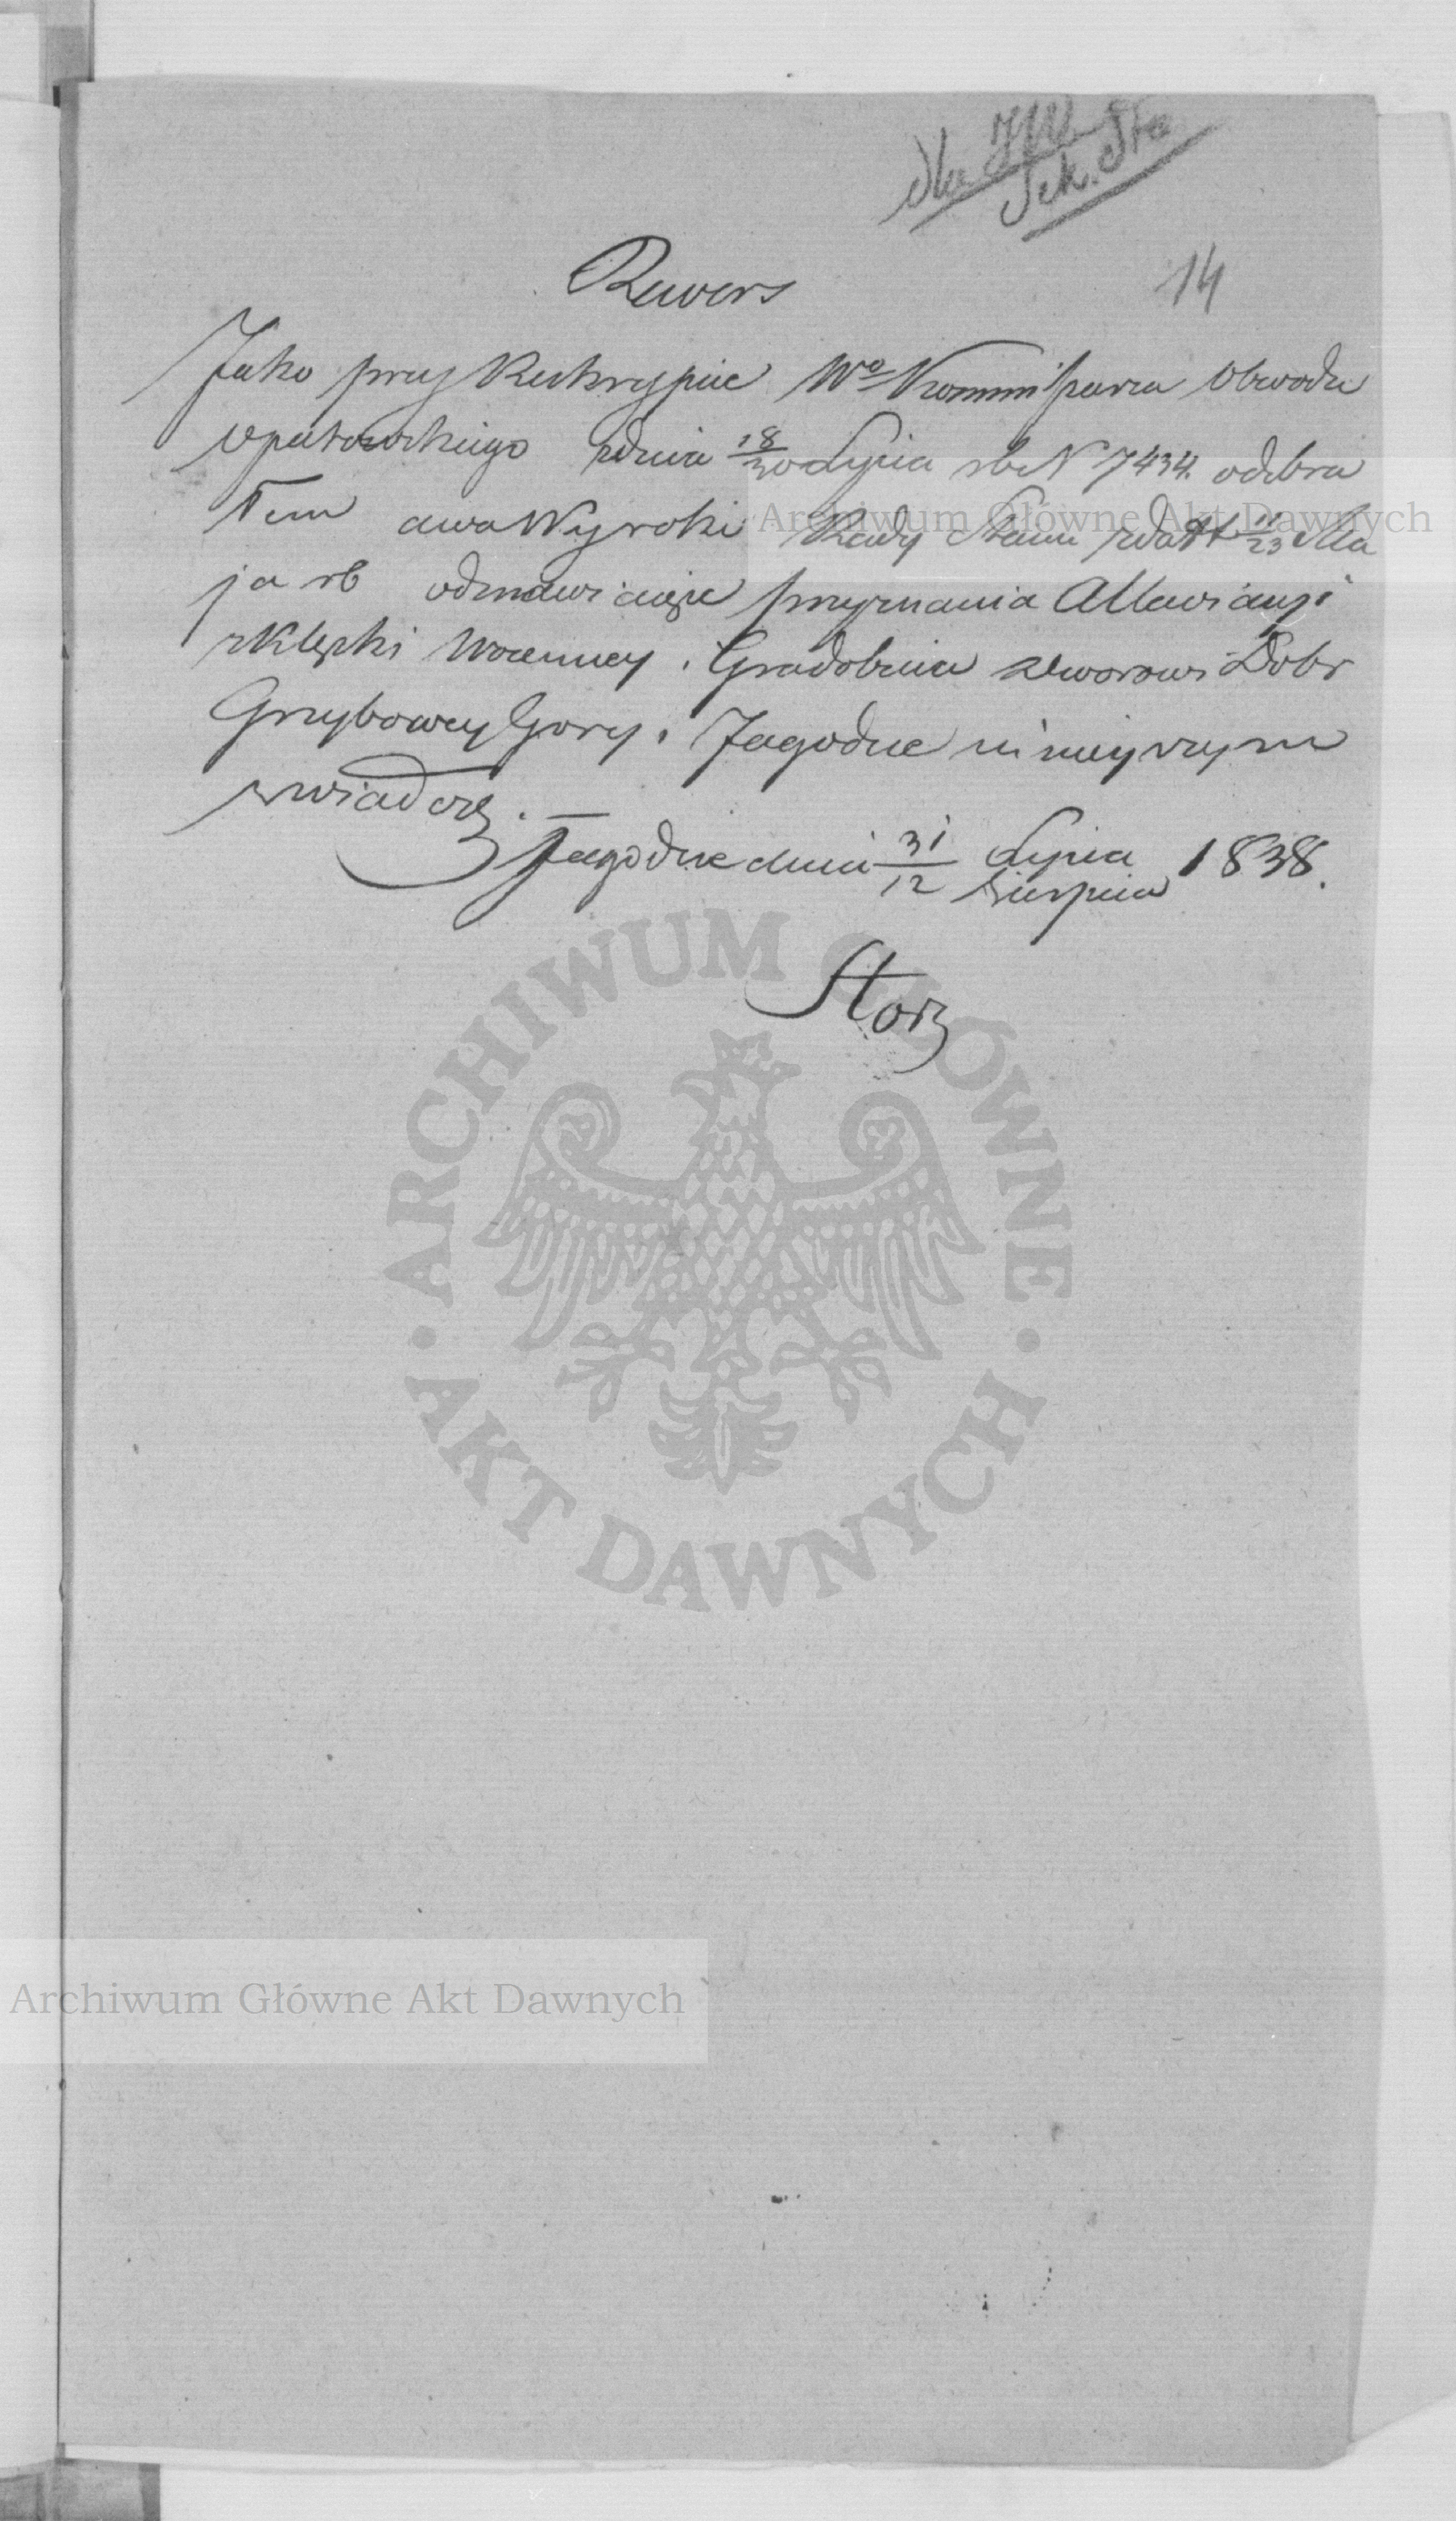 dla JW
Sek. Sta
14
Rewers
Jako przy Reskrypcie Wo Kommissarza Obwodu
Opatowskiego zdnia 18/30 Lipca rb N 7434. odebra
łem dwa Wyroki Rady Stanu zdat 11/23 Ma
ja rb odmawiające przyznania Allewiacyi
z Klęski Woienney i Gradobicia dworowi Dobr
Grzybowey Gory i Jagodne ninieyszym
zwiadcze. —
Jagodne dnia 31/12 Lipca/Sierpnia 1838.
Archiwum Główne Akt Dawnych
ARCHIWUM GŁÓWNE
AKT DAWNYCH
Archiwum Główne Akt Dawnych